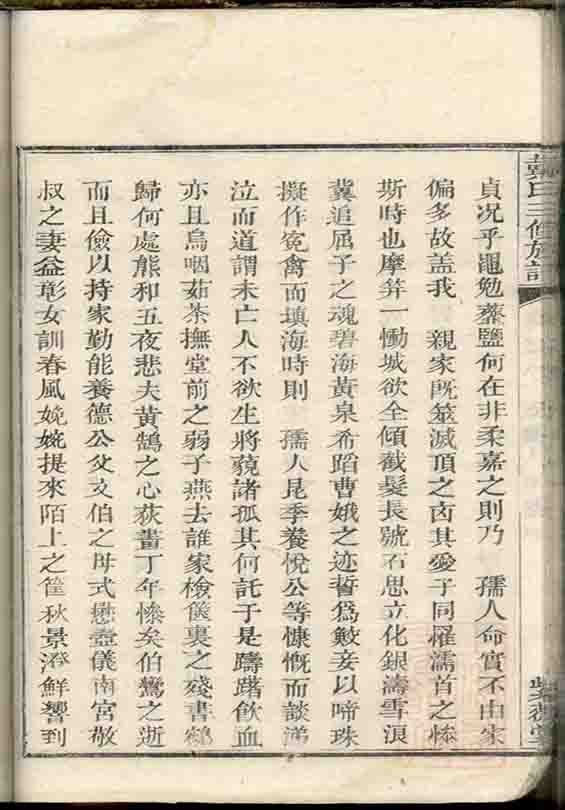 戴氏三修族譜
紫薇堂
貞况乎黽勉虀鹽何在非柔嘉之則乃　孺人命實不由宋
偏多故盖我　親家旣筮滅頂之卤其愛子同罹濡首之慘
斯時也摩笄一慟城欲全傾截髮長號石思立化銀濤雪浪
冀追屈子之魂碧海黃泉希蹈曹娥之迹誓爲鮫妾以啼珠
擬作寃禽而塡海時則　孺人昆季養悅公等慷慨而談涕
泣而道謂未亡人不欲生將藐諸孤其何託于是躊躇飮血
亦且烏咽茹荼撫堂前之弱子燕去誰家檢篋裏之殘書鶴
歸何處熊和五夜悲夫黃鵠之心荻畫丁年慘矣伯鸞之逝
而且儉以持家勤能養德公父文伯之母式懋壼儀南宮敬
叔之妻益彰女訓春風婉婉提來陌上之筐秋景澄鮮響到